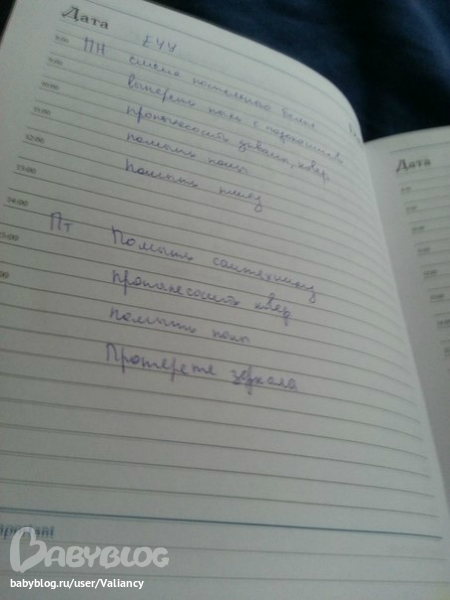 Дата
ЕЧУ
8:00 ПН смена постельного белья
9:00 вытереть пыль с подоконников
10:00 пропылесосить диваны, ковер
11:00 помыть полы
12:00 помыть плиту
13:00
14:00
15:00 Пт Помыть сантехнику
пропылесосить ковер
помыть полы
Протереть зеркала
Дата
BABYBLOG
babyblog.ru/user/Valiancy